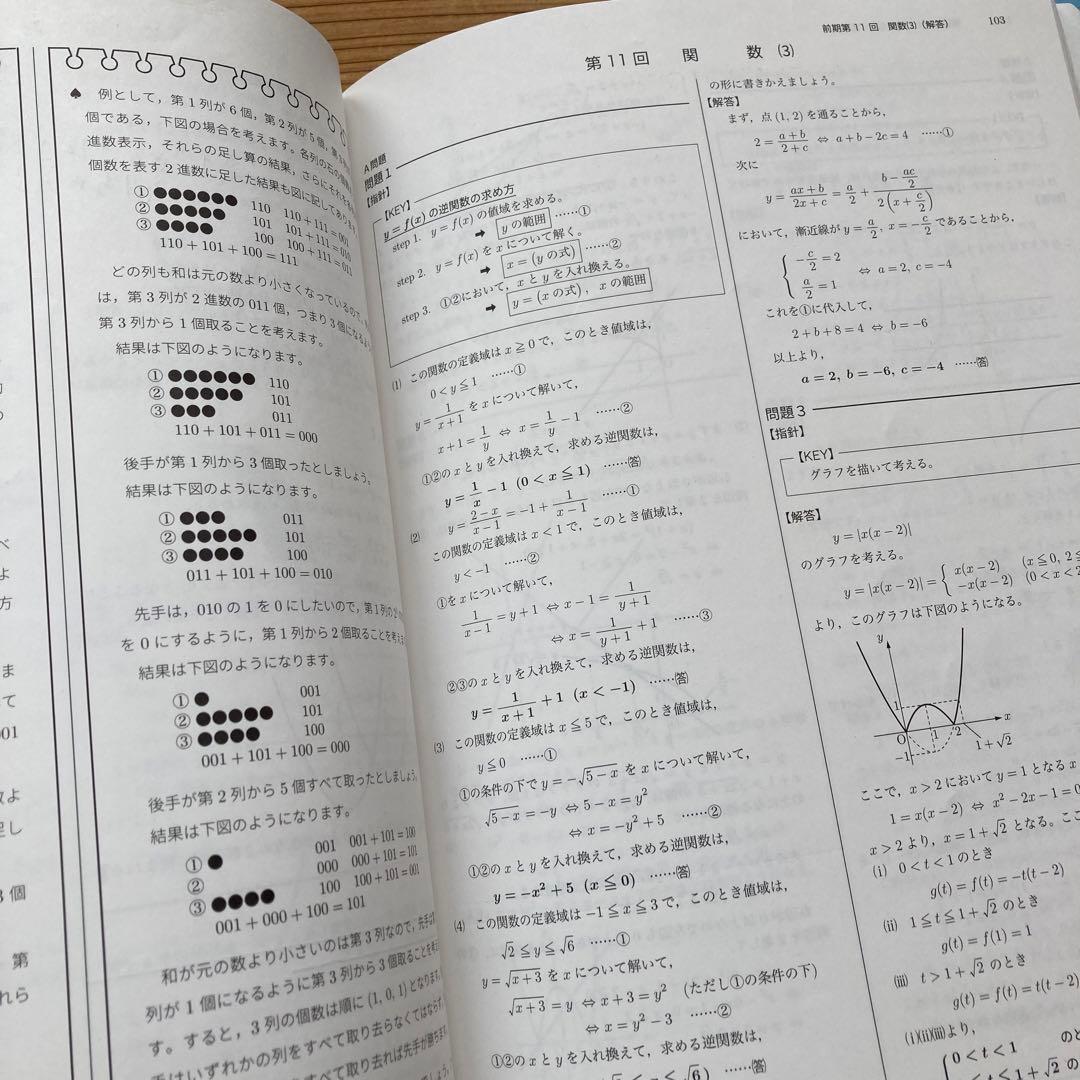 べ
よ
方
ま
て
001
数よ
足し
3個
第
れら
♠ 例として，第1列が6個，第2列が5個，第3
個である，下図の場合を考えます。各列の右の
進数表示，それらの足し算の結果，さらにそれを
個数を表す2進数に足した結果も図に記してあります
① ●●●●●● 110 110+111=001
② ●●●●● 101 101+111=010
③ ●●●● 100 100+111=011
110+101+100=111
どの列も和は元の数より小さくなっているので，
は，第3列が2進数の011個，つまり3個になるよ
第3列から1個取ることを考えます。
結果は下図のようになります。
① ●●●●●● 110
② ●●●●● 101
③ ●●● 011
110+101+011=000
後手が第1列から3個取ったとしましょう。
結果は下図のようになります。
① ●●● 011
② ●●●●● 101
③ ●●●● 100
011+101+100=010
先手は，010の1を0にしたいので，第1列の2
を0にするように，第1列から2個取ることを考え
結果は下図のようになります。
① ● 001
② ●●●●● 101
③ ●●●● 100
001+101+100=000
後手が第2列から5個すべて取ったとしましょう。
結果は下図のようになります。
① ● 001 001+101=100
② 000 000+101=101
③ ●●●● 100 100+101=001
001+000+100=101
和が元の数より小さいのは第3列なので，先手は
列が1個になるように第3列から3個取ることを考え
す。すると，3列の個数は順に(1, 0, 1)となります。
手はいずれかの列をすべて取り去らなくてはならず，
取り去れば先手が勝ちます
前期第11回 関数(3)（解答） 103
第11回 関 数 (3)
A問題
問題1
【指針】
【KEY】
y=f(x)の逆関数の求め方
step 1. y=f(x)の値域を求める。
➡ yの範囲 ……①
step 2. y=f(x)をxについて解く。
➡ x=(yの式) ……②
step 3. ①②において，xとyを入れ換える。
➡ y=(xの式)，xの範囲
(1) この関数の定義域はx≧0で，このとき値域は，
0<y≦1 ……①
y=1/(x+1) をxについて解いて，
x+1=1/y ⇔ x=1/y-1 ……②
①②のxとyを入れ換えて，求める逆関数は，
y=1/x-1 (0<x≦1) ……㊎
(2) y=(2-x)/(x-1)=-1+1/(x-1) ……①
この関数の定義域はx<1で，このとき値域は，
y<-1 ……②
①をxについて解いて，
1/(x-1)=y+1 ⇔ x-1=1/(y+1)
⇔ x=1/(y+1)+1 ……③
②③のxとyを入れ換えて，求める逆関数は，
y=1/(x+1)+1 (x<-1) ……答
(3) この関数の定義域はx≦5で，このとき値域は，
y≦0 ……①
①の条件の下でy=-√(5-x)をxについて解いて，
√(5-x)=-y ⇔ 5-x=y²
⇔ x=-y²+5 ……②
①②のxとyを入れ換えて，求める逆関数は，
y=-x²+5 (x≦0) ……答
(4) この関数の定義域は-1≦x≦3で，このとき値域は，
√2≦y≦√6 ……①
y=√(x+3)をxについて解いて，
√(x+3)=y ⇔ x+3=y² (ただし①の条件の下)
⇔ x=y²-3 ……②
①②のxとyを入れ換えて，求める逆関数は，
≦x≦√6) ……答
の形に書きかえましょう。
【解答】
まず，点(1, 2)を通ることから，
2=(a+b)/(2+c) ⇔ a+b-2c=4 ……①
次に
y=(ax+b)/(2x+c)=a/2+(b-ac/2)/(2(x+c/2))
において，漸近線がy=a/2, x=-c/2であることから，
{ -c/2=2
a/2=1 ⇔ a=2, c=-4
これを①に代入して，
2+b+8=4 ⇔ b=-6
以上より，
a=2, b=-6, c=-4 ……答
問題3
【指針】
【KEY】
グラフを描いて考える。
【解答】
y=|x(x-2)|
のグラフを考える。
y=|x(x-2)|={ x(x-2) (x≦0, 2≦
-x(x-2) (0<x<2
より，このグラフは下図のようになる。
y
O 1 2 x
-1
1+√2
ここで，x>2においてy=1となるx
1=x(x-2) ⇔ x²-2x-1=0
x>2より，x=1+√2となる。ここ
(i) 0<t<1のとき
g(t)=f(t)=-t(t-2)
(ii) 1≦t≦1+√2のとき
g(t)=f(1)=1
(iii) t>1+√2のとき
g(t)=f(t)=t(t-2)
(i)(ii)(iii)より，
{ 0<t<1 のと
≦t≦1+√2 の